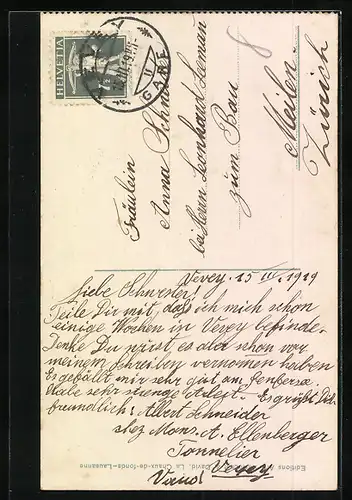 HELVETIA
GARE
Fräulein
Anna Schneider
bei Herrn Leonhard Leman
zum Bau
Meilen.
Zürich
8
Vevey. 15 III. 1919
Liebe Schwester!
Teile Dir mit, daß ich mich schon
einige Wochen in Vevey befinde.
Denke Du wirst es aber schon von
meinem Schreiben vernommen haben
Es gefällt mir sehr gut am Genfersee.
Habe sehr strenge Arbeit. Es grüßt Dich
freundlich! Albert Schneider
chez Mons. A. Ellenberger
Tonnelier
Vevey
Vaud
Editions David, La Chaux-de-fonds-Lausanne